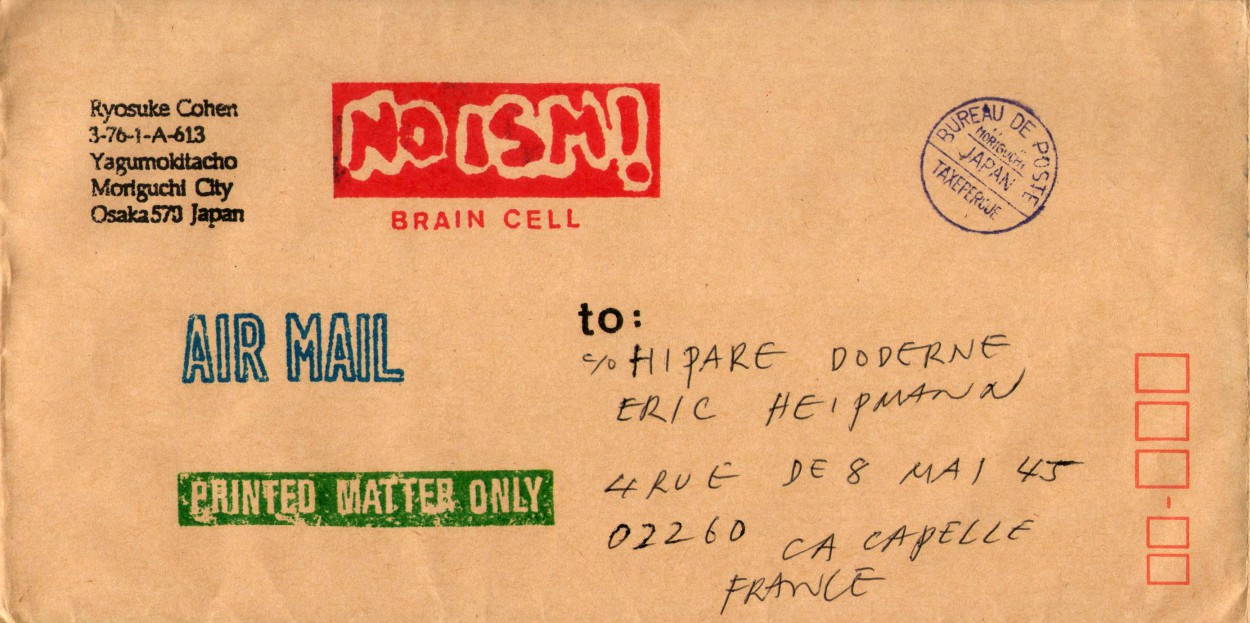 Ryosuke Cohen
3-76-1-A-613
Yagumokitacho
Moriguchi City
Osaka570 Japan
NO ISM!
BRAIN CELL
BUREAU DE POSTE
MORIGUCHI
JAPAN
TAXE PERÇUE
AIR MAIL
PRINTED MATTER ONLY
to:
c/o HIPARE DODERNE
ERIC HEIPMANN
4 RUE DE 8 MAI 45
02260 CA CAPELLE
FRANCE